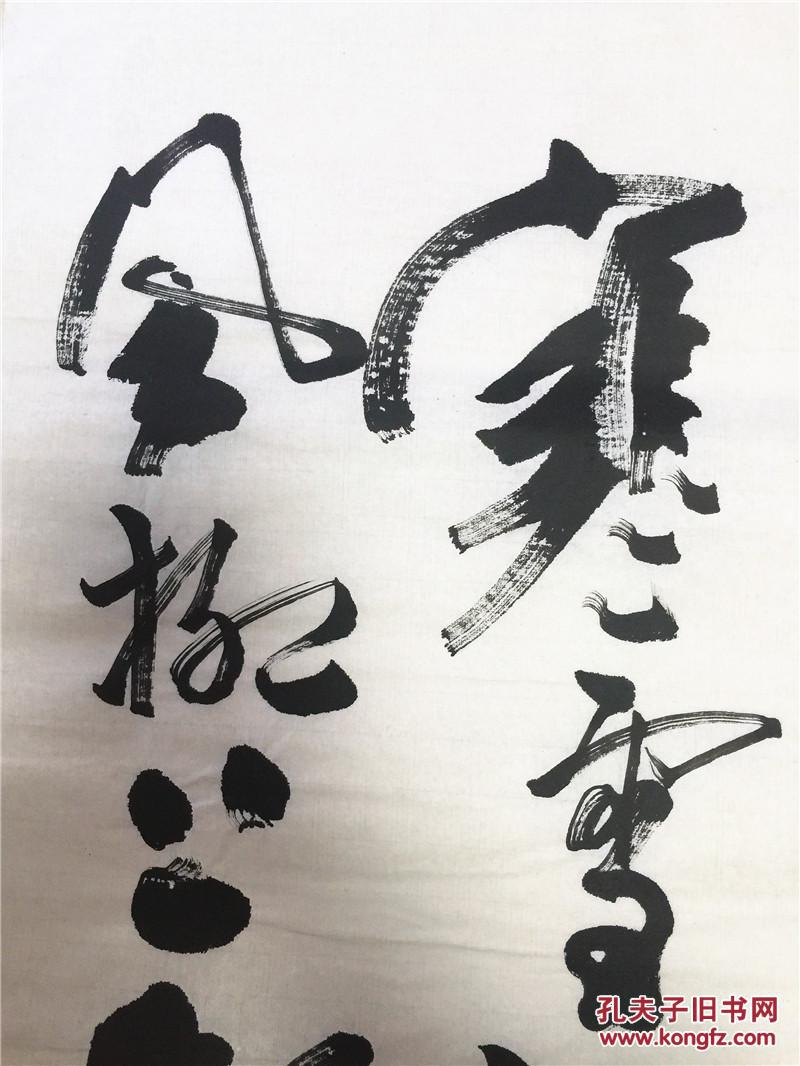 寒雪
風柳上
孔夫子旧书网
www.kongfz.com